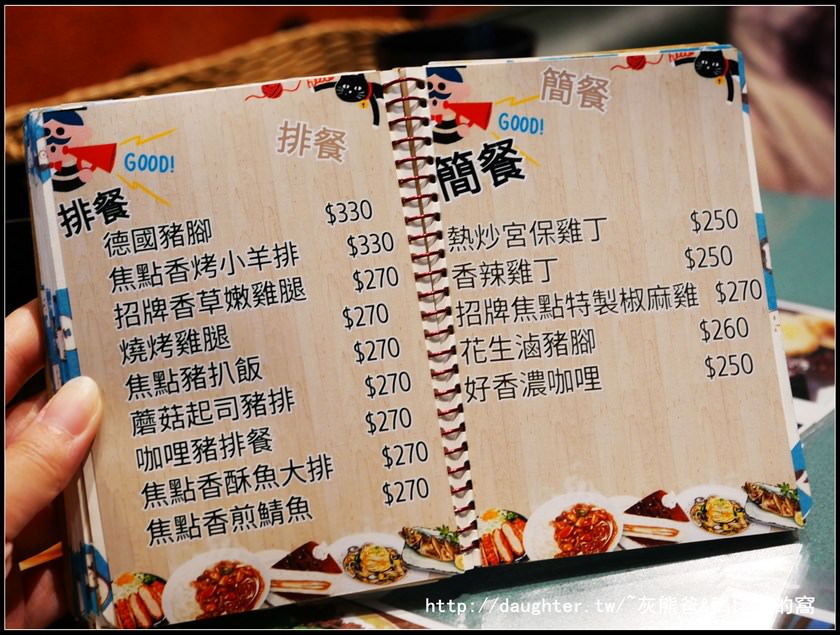 GOOD!
排餐
排餐
德國豬腳 $330
焦點香烤小羊排 $330
招牌香草嫩雞腿 $270
燒烤雞腿 $270
焦點豬扒飯 $270
蘑菇起司豬排 $270
咖哩豬排餐 $270
焦點香酥魚大排 $270
焦點香煎鯖魚 $270
簡餐
GOOD!
簡餐
熱炒宮保雞丁 $250
香辣雞丁 $250
招牌焦點特製椒麻雞 $270
花生滷豬腳 $260
好香濃咖哩 $250
http://daughter.tw/~灰熊爸&
的窩